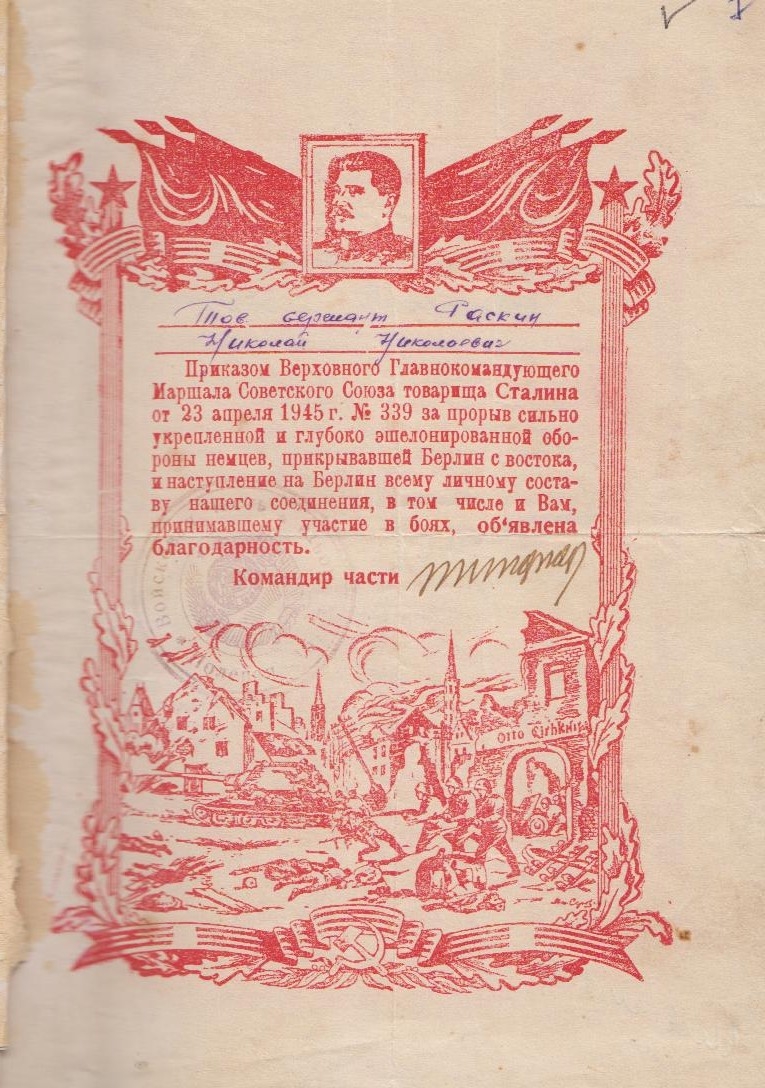 Тов. сержант Раскин
Николай Николаевич
Приказом Верховного Главнокомандующего
Маршала Советского Союза товарища Сталина
от 23 апреля 1945 г. № 339 за прорыв сильно
укрепленной и глубоко эшелонированной обо-
роны немцев, прикрывавшей Берлин с востока,
и наступление на Берлин всему личному соста-
ву нашего соединения, в том числе и Вам,
принимавшему участие в боях, об‘явлена
благодарность.
Командир части
Otto